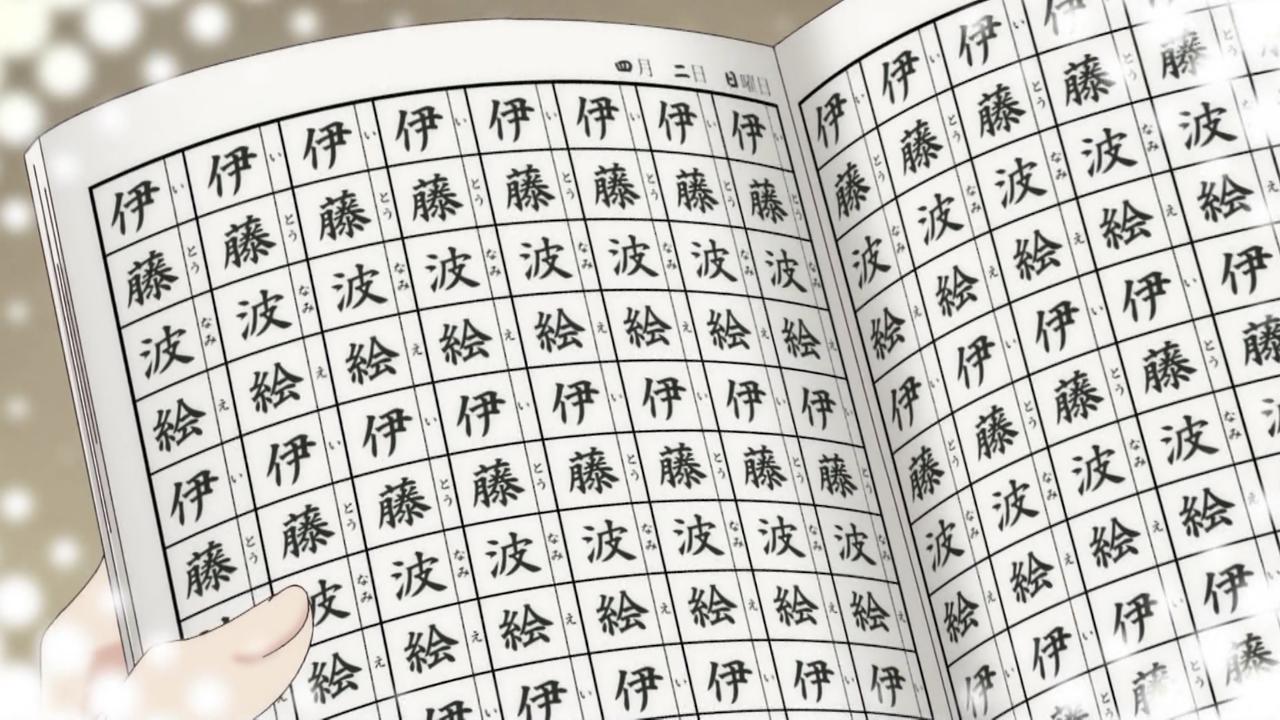 藤波絵伊藤
とうなみえ
伊藤波絵伊藤波絵伊藤
いとうなみえいとうなみえい
伊藤波絵伊藤波絵伊藤
いとうなみえいとうなみえいとう
伊藤波絵伊藤波絵伊
いとうなみえいとうなみえい
伊藤波絵伊藤波絵伊
いとうなみえいとうなみえい
四月 二日 日曜日
伊藤波絵伊藤波絵伊
いとうなみえいとうなみえい
伊藤波絵伊藤波絵伊
いとうなみえいとうなみえい
伊藤波絵伊藤波絵伊
いとうなみえいとうなみえい
伊藤波絵伊藤波絵伊
いとうなみえいとうなみえい
伊藤波絵伊藤波絵伊
いとうなみえいとうなみえい
伊藤波絵伊藤波絵伊
いとうなみえいとうなみえ
伊藤波絵伊藤波絵
いとうなみえいとうなみえ
伊藤波絵伊藤
いとうなみえいとう